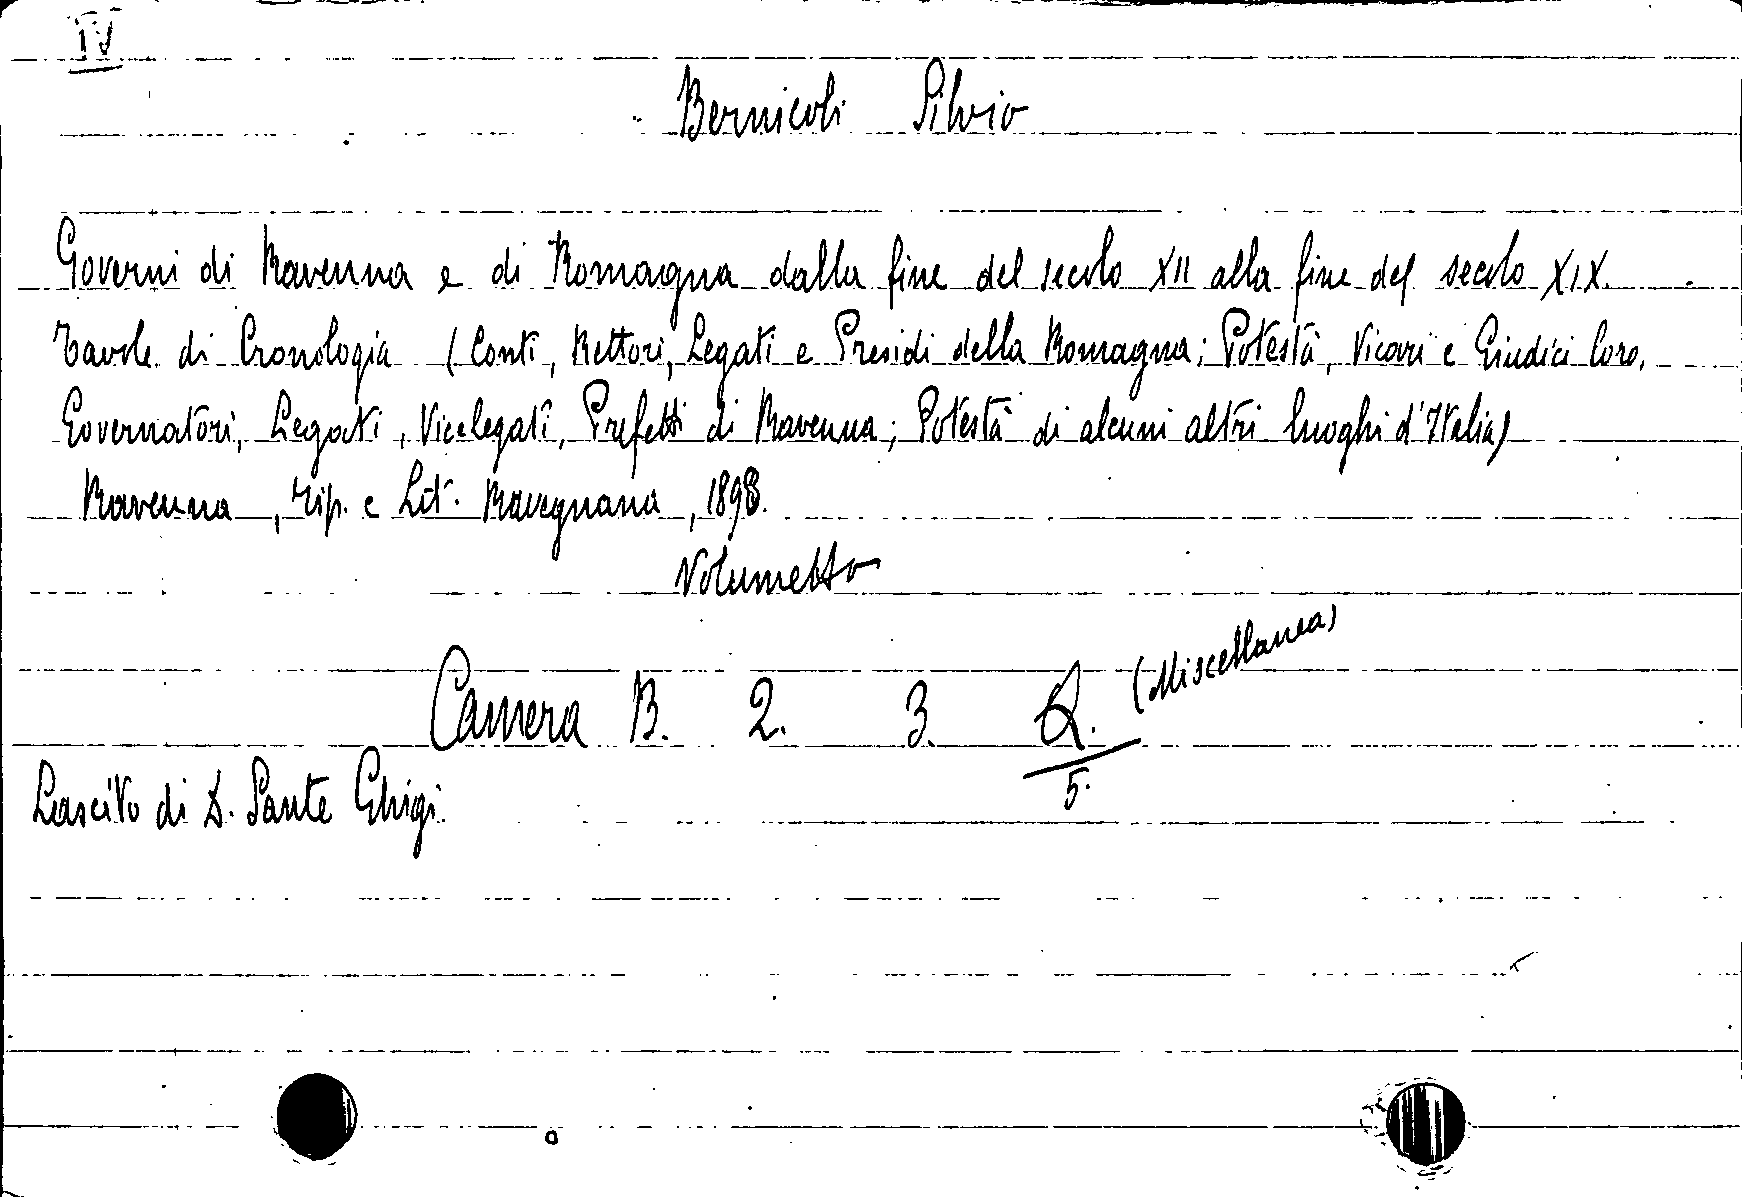 IV
Bernicoli Silvio
Governi di Ravenna e di Romagna dalla fine del secolo XII alla fine del secolo XIX.
Tavole di Cronologia (Conti, Rettori, Legati e Presidi della Romagna; Potestà, Vicari e Giudici loro,
Governatori, Legati, Vicelegati, Prefetti di Ravenna; Potestà di alcuni altri luoghi d'Italia)
Ravenna, Tip. e Lit. Ravegnana, 1898.
Volumetto
Camera B. 2. 3. (Miscellanea)
5.
Lascito di D. Sante Ghigi